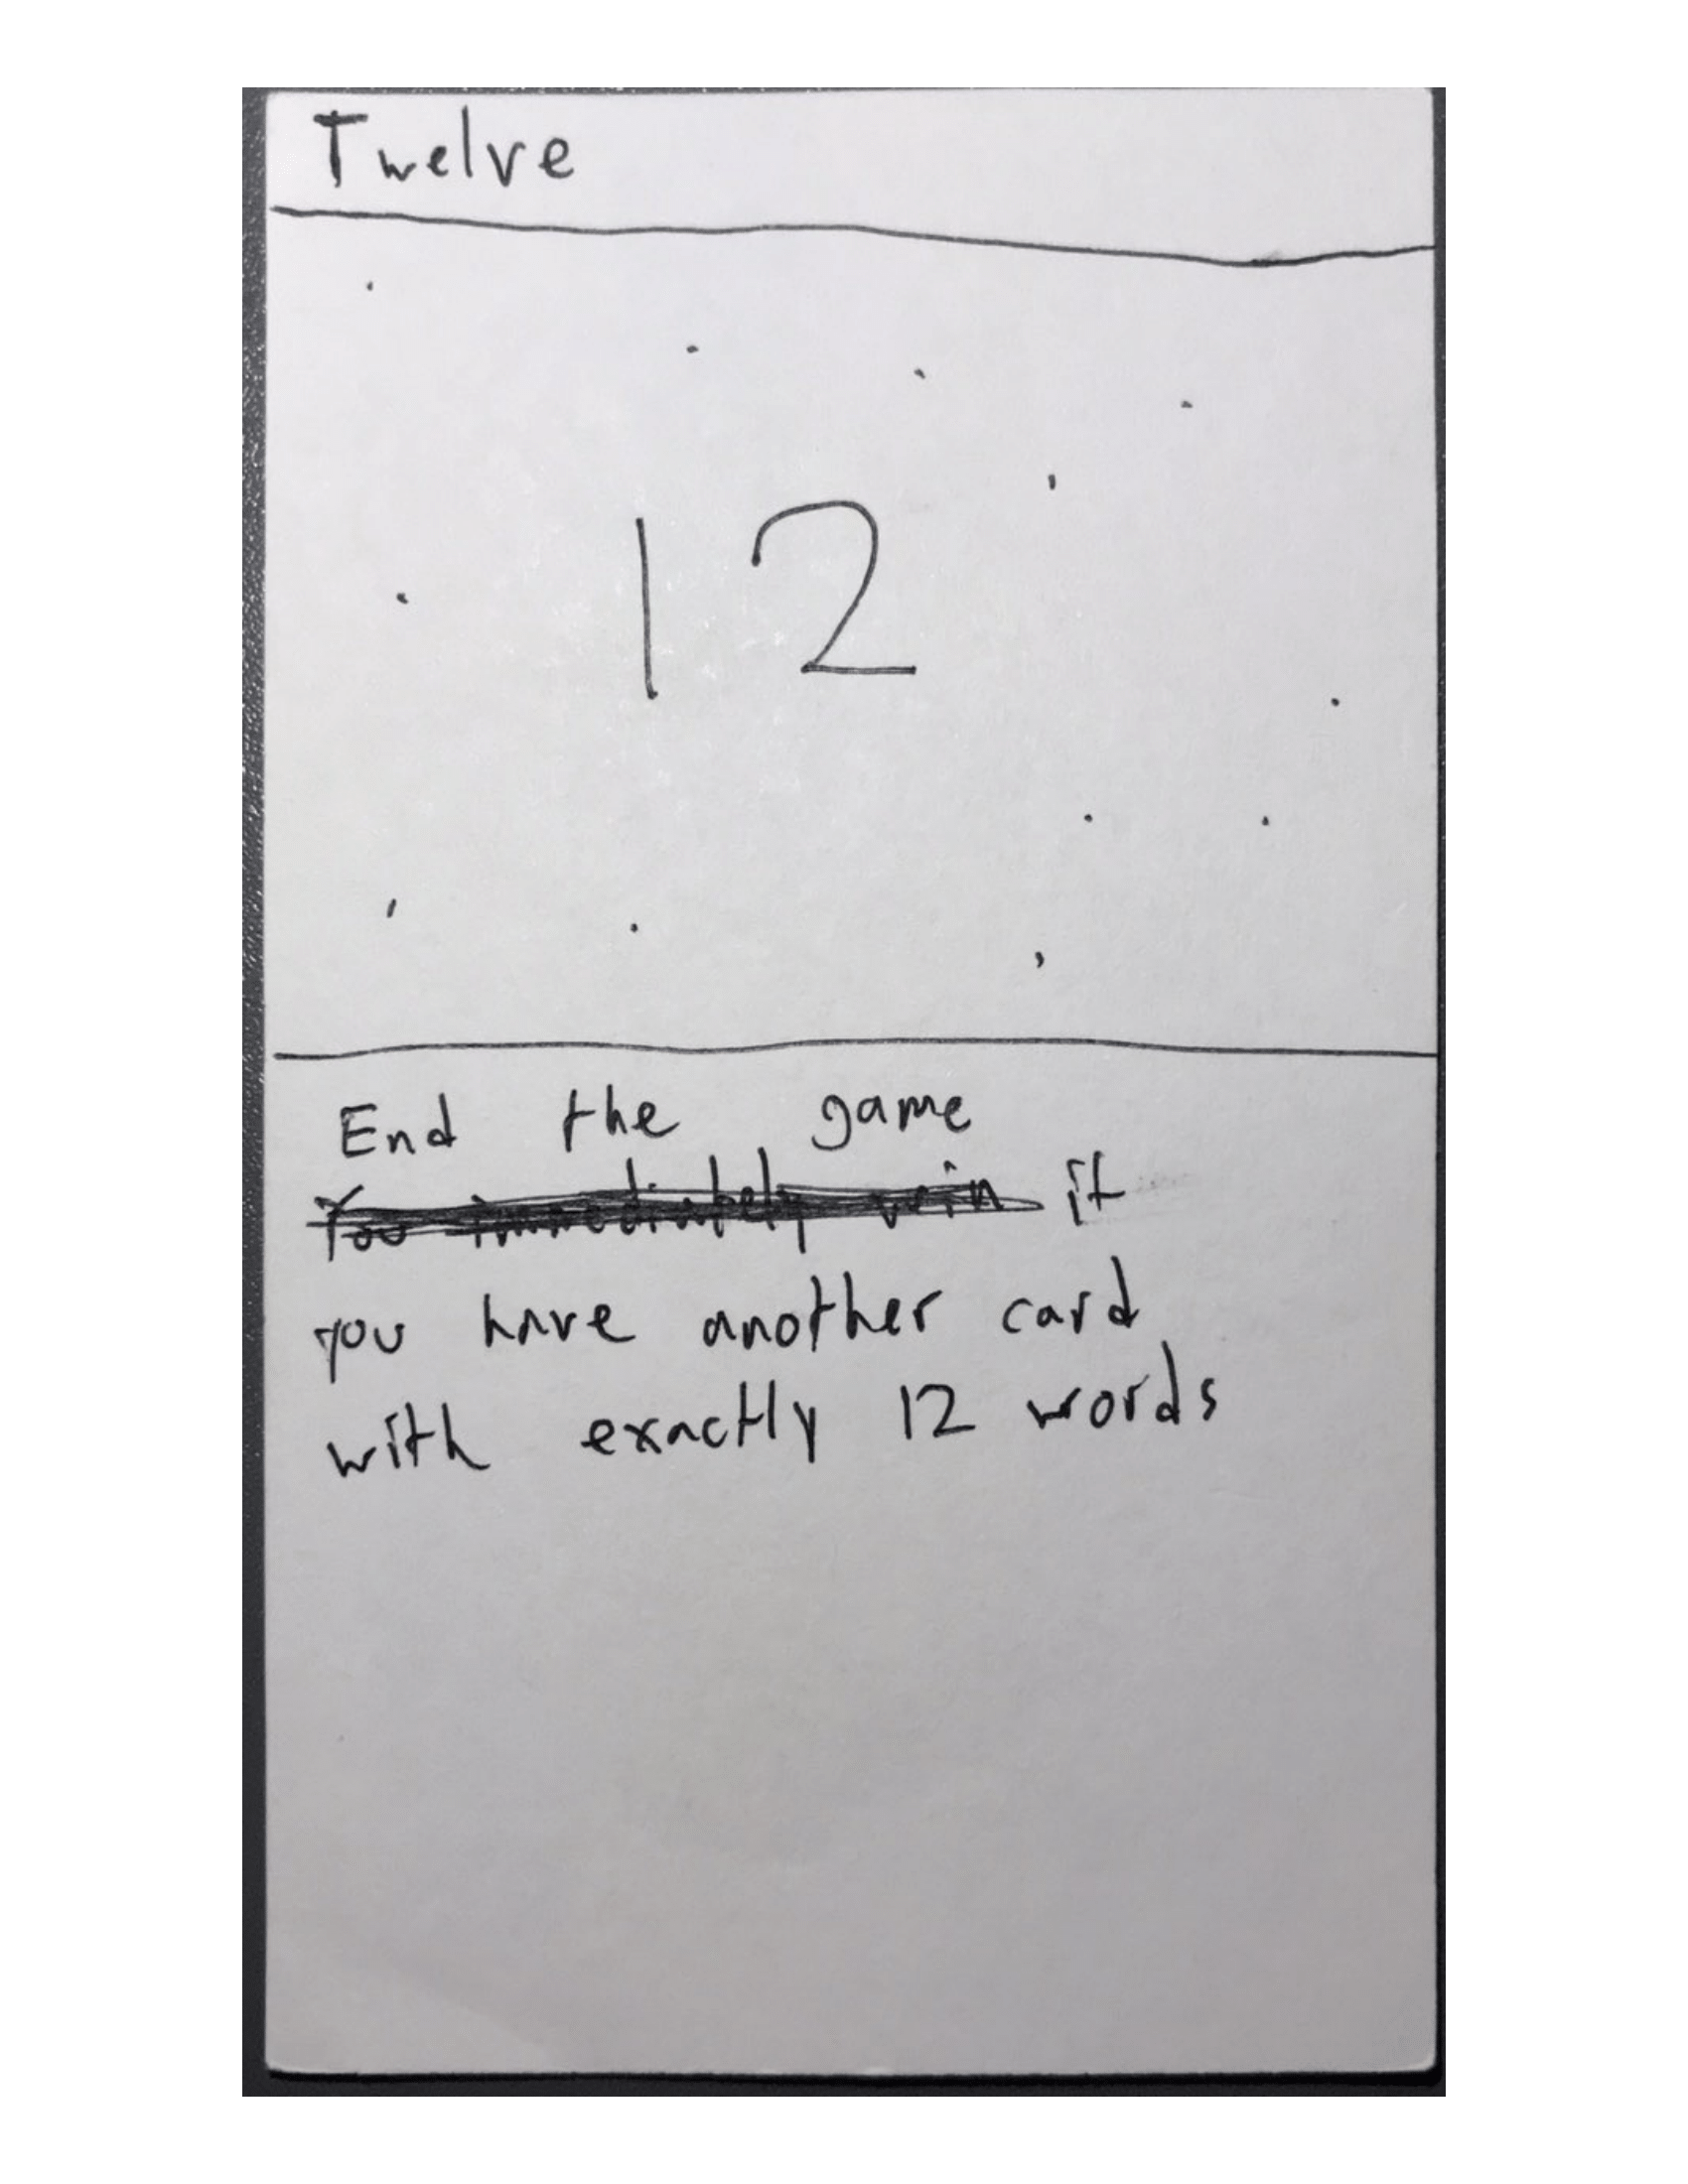 Twelve
12
End the game
You immediately win if
you have another card
with exactly 12 words